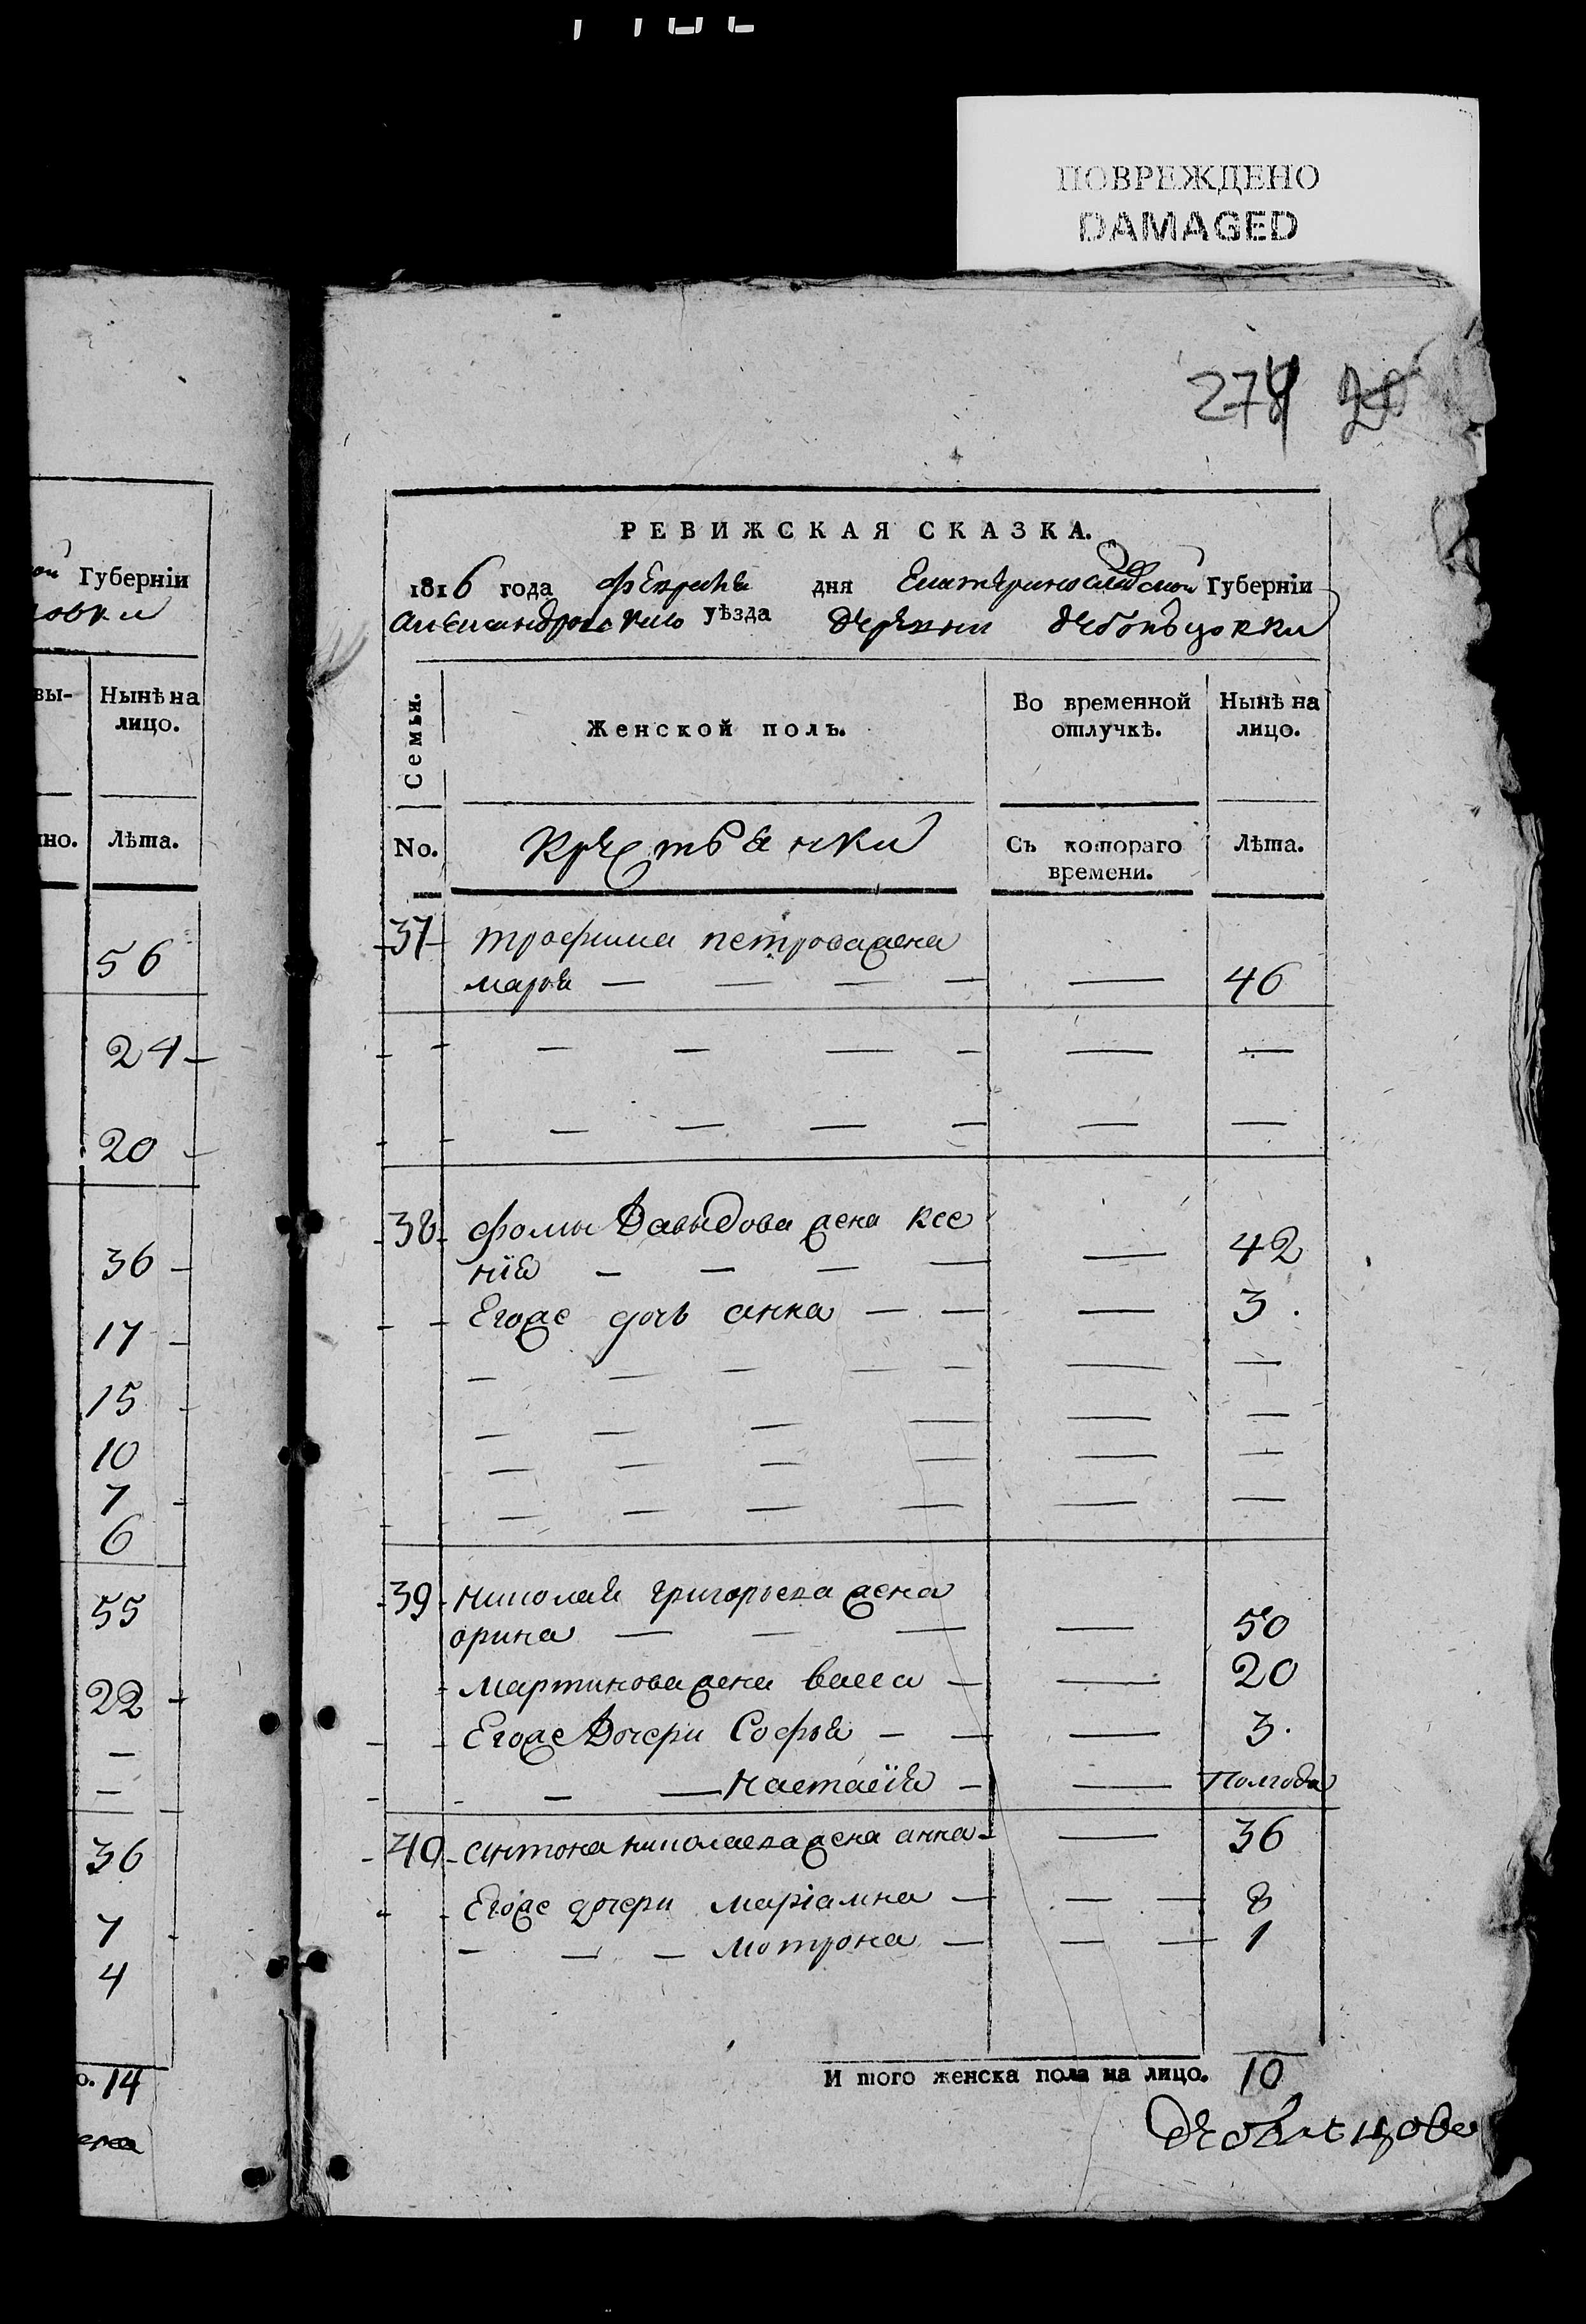 ПОВРЕЖДЕНО
DAMAGED
274
РЕВИЖСКАЯ СКАЗКА.
1816 года Февраля дня Екатеринославской Губерніи
александровскаго уѣзда деревни дебальцовки
Семьи.
Женской полъ.
Во временной отлучкѣ.
Нынѣ на лицо.
No.
крестьянки
Съ котораго времени.
Лѣта.
37 трофима петрова жена
марья — — — — — 46
— — — — — —
— — — — — —
38 фомы Давыдова жена ксе
нія — — — — — 42
Егоже дочь анна — — — 3.
— — — — — — —
— — — — — —
— — — — — —
— — — — — —
39 николая григорьева жена
орина — — — — 50
мартинова жена васса — — 20
Егоже Дочери Софья — — — 3.
— — настасія — — Полгода
40 антона николаева жена анна — — 36
Егоже дочери маріамна — — — 8
— — — мотрона — — — 1
И того женска пола на лицо. 10
ой Губерніи
овки
вы-
Нынѣ на лицо.
но.
Лѣта.
56
24 —
20 —
36 —
17 —
15
10
7
6
55
22 —
—
—
36
7
4
о. 14